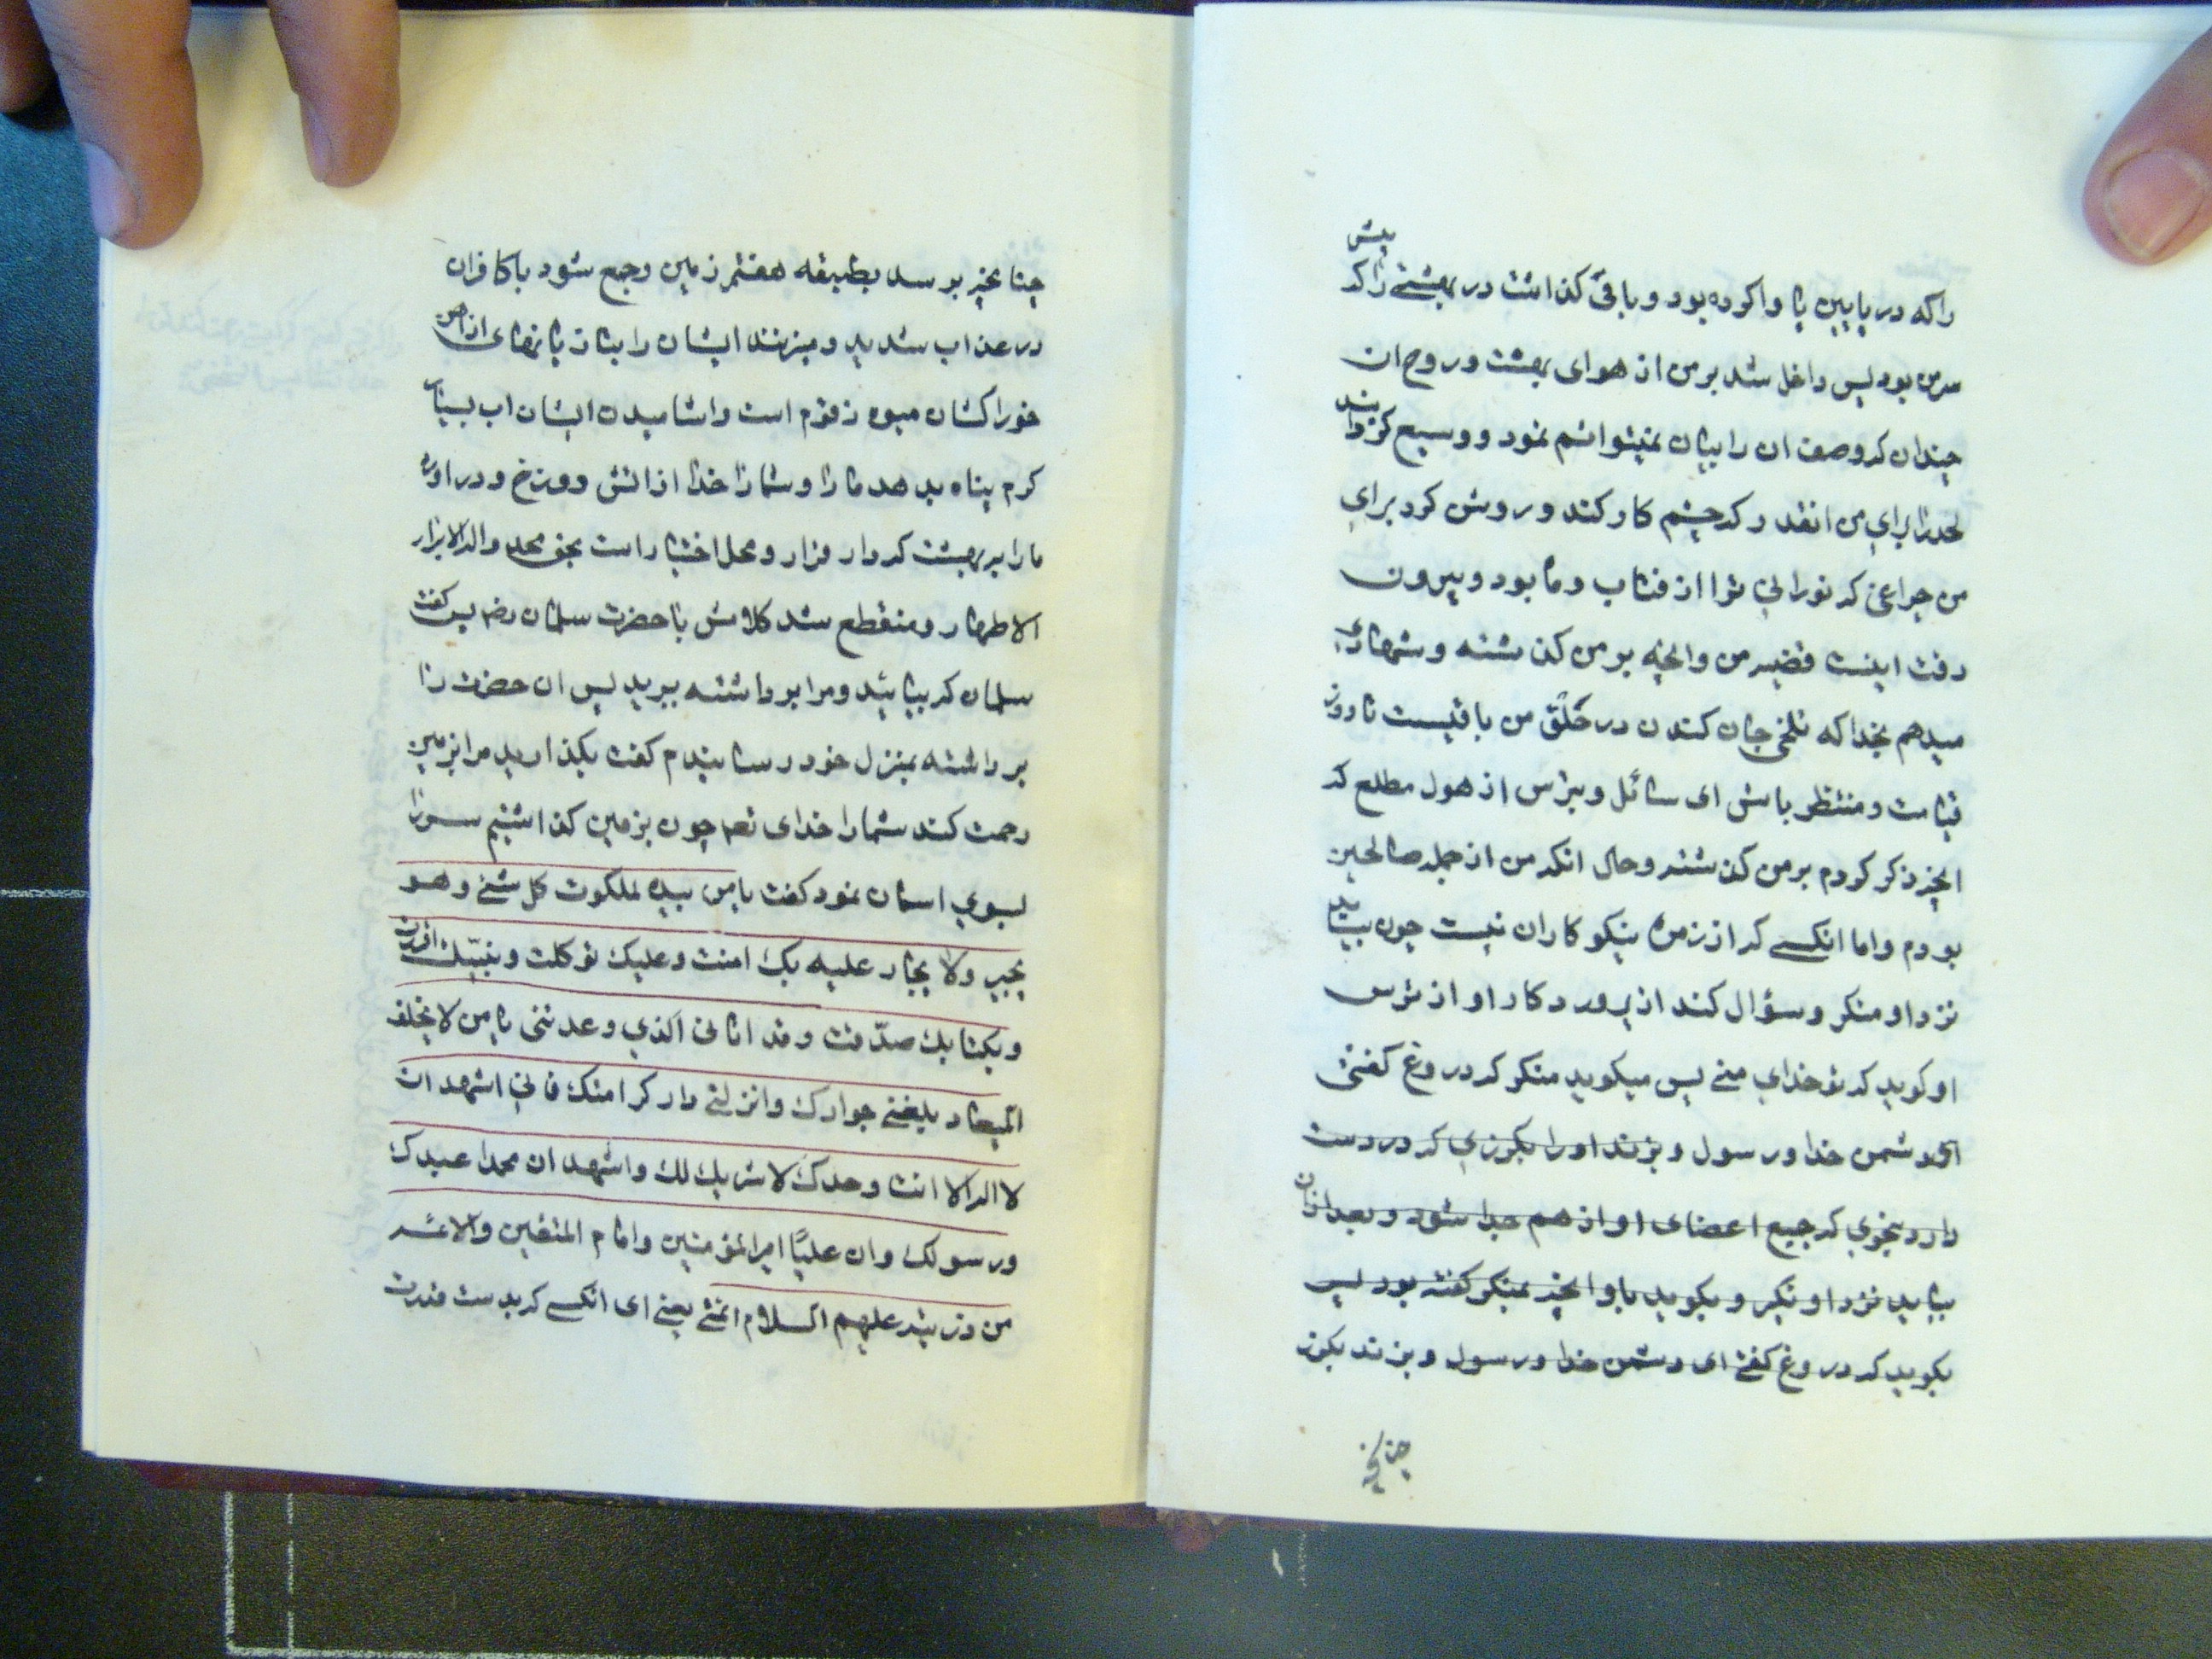 را که در پایین پا وا کرده بود و باقی گذاشت در بهشتے را که پیش
سرمن بود پس داخل شد بر من از هوای بهشت و روح ان
چندان که وصف ان را بیان نمیتوانم نمود و وسیع کردانید
لحد را برای من انقدر که چشم کار کند و روشن کرد برای
من چراغی که نورانی تر از افتاب و ماه بود و بیرون
رفت اینست قضیه من و انچه بر من گذشته و شهادت
میدهم بخدا که تلخی جان کندن در حَلق من باقیست تا روز
قیامت و منتظر باش ای سائل و بترس از هول مطلع که
انچه ذکر کردم بر من گذشته و حال انکه من از جمله صالحین
بودم و اما انکسے که از زمره نیکو کاران نیست چون بیاید
نزد او منکر و سؤال کند از پروردکار او از ترس
او کوید که تو خدای منے پس میکوید منکر که دروغ کفتی
ای دشمن خدا و رسول و بزند او را بکرزی که در دست
دارد بنحوی که جمیع اعضای او از هم جدا شود و بعد از ان
بیاید نزد او نکیر و بکوید باو انچه بمنکر کفته بود پس
بکوید که دروغ کفتے ای دشمن خدا و رسول و بزند بکرز
چنانچه
چنانچه برسد بطبقه هفتم زمین و جمع شود با کافران
در عذاب شدید و میزنند ایشان را بتازیانهای از اهن
خوراکشان میوه زقوم است و اشامیدن ایشان اب بسیار
کرم پناه بدهد ما را و شما را خدا از اتش دوزخ و دراورد
ما را به بهشت که دار قرار و محل اختیار است بحق محمد واله الابرار
الاطهار و منقطع شد کلامش با حضرت سلمان رضه پس کفت
سلمان که بیائید و مرا برداشته ببرید پس ان حضرت را
برداشته بمنزل خود رسانیدم کفت بکذارید مرا بزمین
رحمت کند شما را خدای تعه چون بزمین کذاشتیم سر را
بسوی اسمان نمود کفت یا من بیده ملکوت کل شئے و هو
یجیر ولا یجار علیه بک امنت و علیک توکلت و بنبیّک اقررت
و بکتابک صدّقت و قد اتانی الّذی وعدتنی یا من لا یخلف
المیعاد بلغنے جوارک و انزلنے دار کرامتک فانی اشهد ان
لا اله الا انت وحدک لا شریک لک و اشهد ان محمدا عبدک
و رسولک و ان علیًّا امیرالمؤمنین و امام المتقین و الائمه
من ذریته علیهم السلام ائمتے یعنے ای انکسے که بدست قدرت